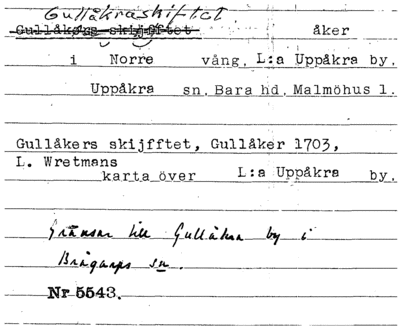 Gullåkraskiftet.
Gullåkers skijfftet åker
i Norre vång, L:a Uppåkra by.
Uppåkra sn. Bara hd. Malmöhus l.
Gullåkers skijfftet, Gullåker 1703,
L. Wretmans
karta över L:a Uppåkra by.
Gränsar till Gullåkra by i
Brågarps sn.
Nr 5543.